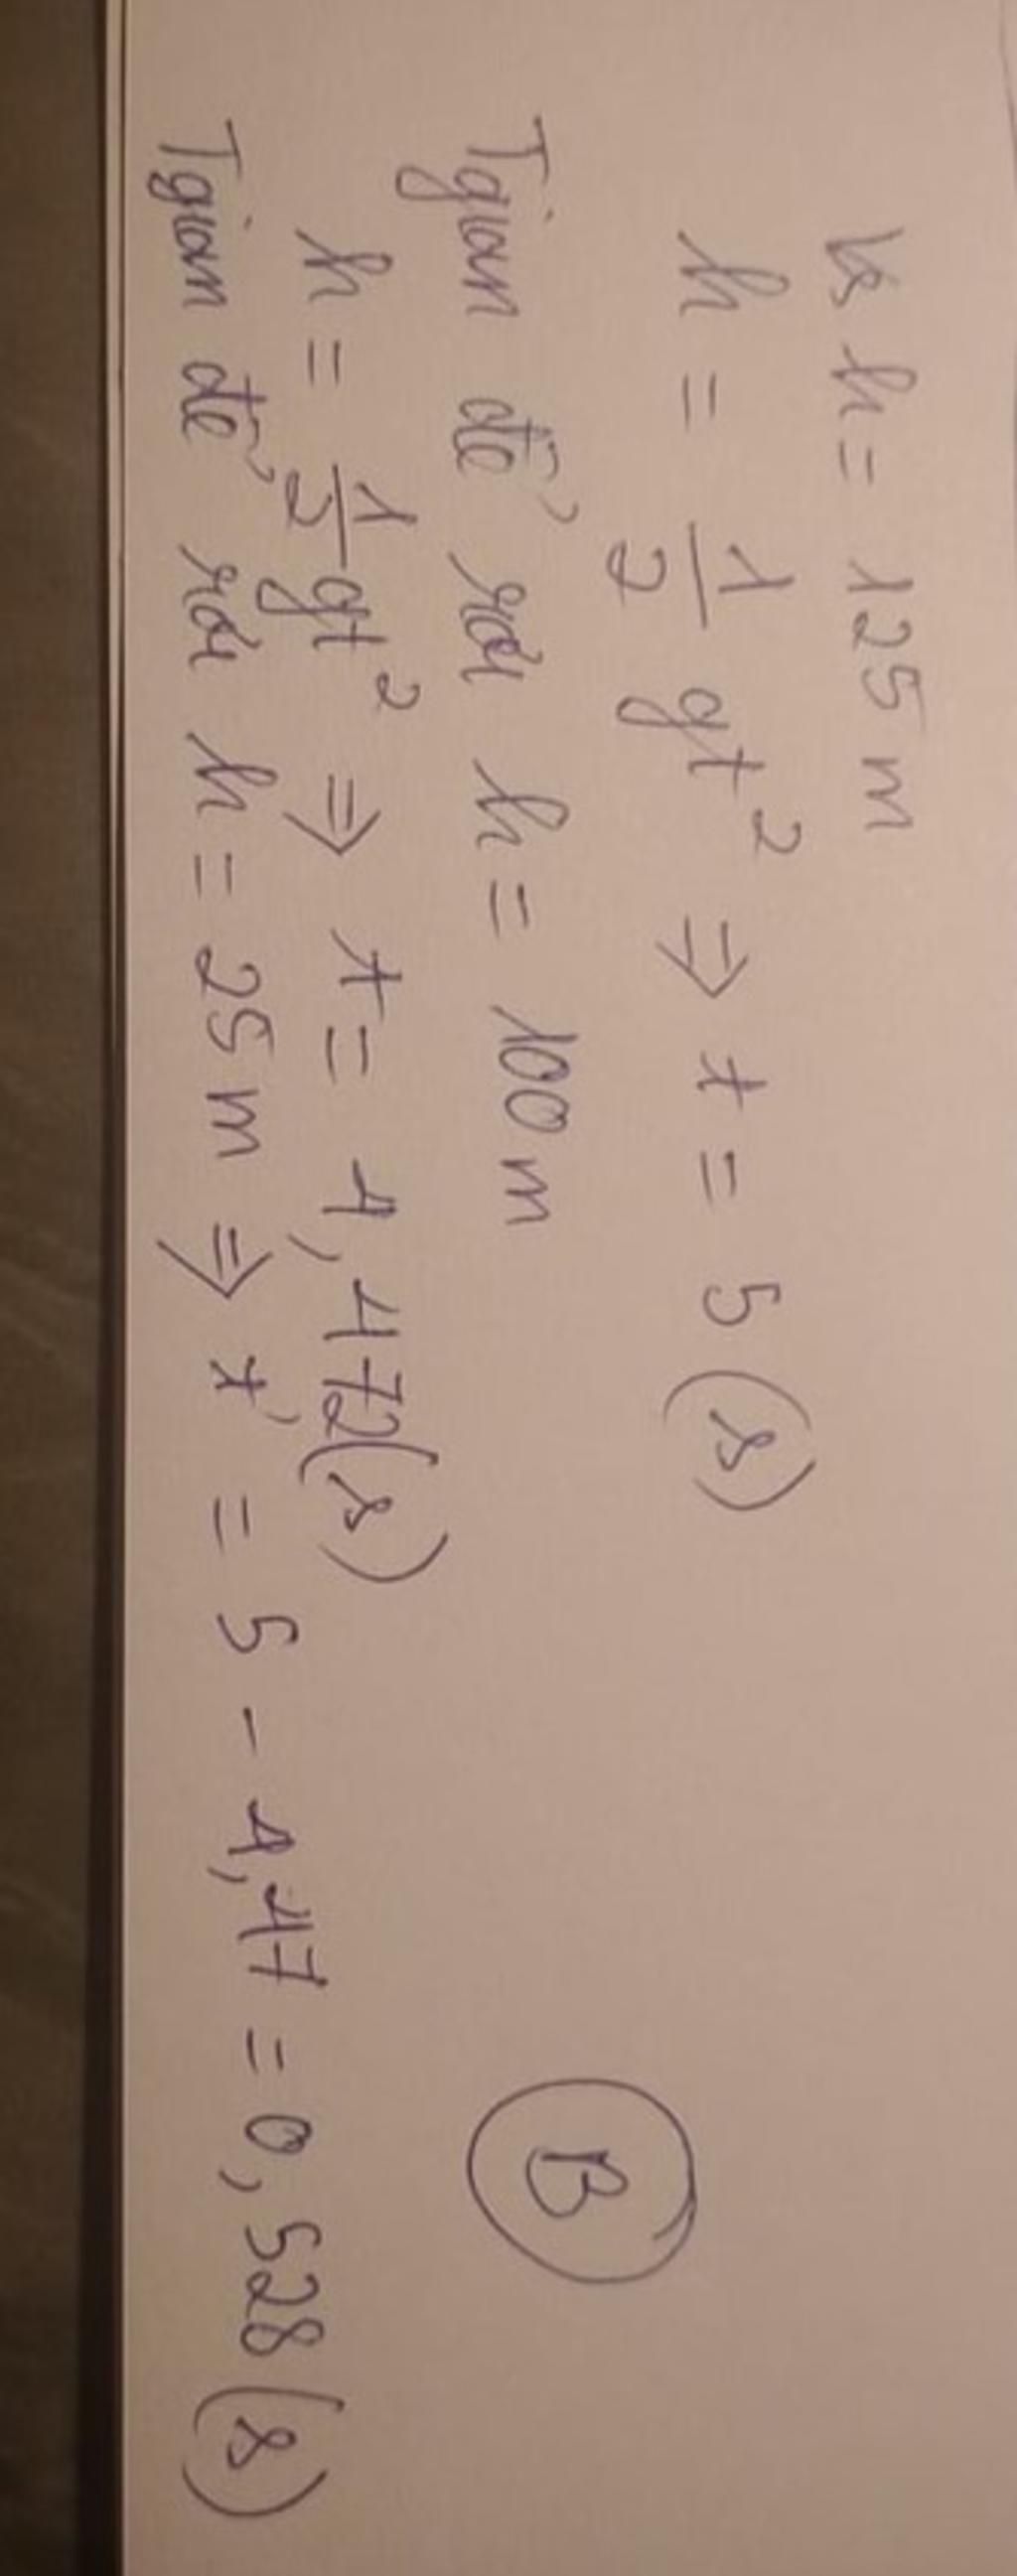 h = 125 m
h = 1/2 gt² ⇒ t = 5 (s)
Tgian để rơi h = 100 m
h = 1/2 gt² ⇒ t = 4,472(s)
Tgian để rơi h = 25 m ⇒ t' = 5 - 4,47 = 0,528 (s)
B